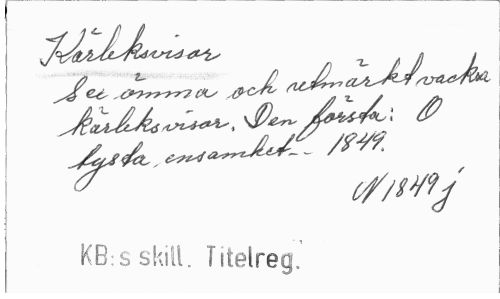 Kärleksvisor
Sex ömma och utmärkt vackra
kärleksvisor. Den första: O
tysta, ensamhet -- 1849.
N 1849 j
KB:s skill. Titelreg.